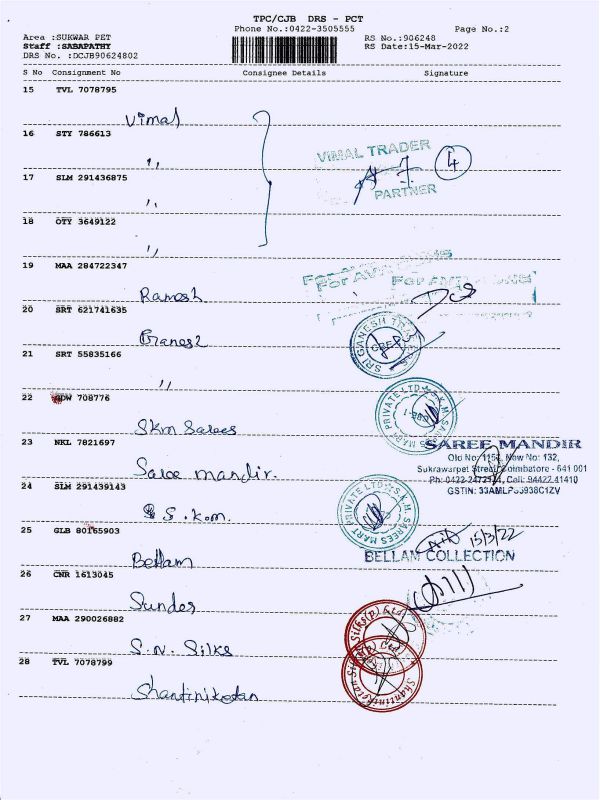 TPC/CJB DRS - PCT
Phone No.:0422-3505555
Page No.:2
Area :SUKWAR PET
Staff :SABAPATHY
DRS No. :DCJB90624802
RS No.:906248
RS Date:15-Mar-2022
S No Consignment No Consignee Details Signature
15 TVL 7078795
Vimal
16 STY 786613
,,
VIMAL TRADER
4
17 SLM 291436875
PARTNER
,,
18 OTY 3649122
,,
19 MAA 284722347
For AVM
Ramesh
20 SRT 621741635
SRI GANESH TRADERS
Ganesh
21 SRT 55835166
,,
22 708776
S.K.M. SAREES MART PRIVATE LTD
Skm Sarees
23 NKL 7821697
SAREE MANDIR
Old No: 115, New No: 132,
Sukrawarpet Street, Coimbatore - 641 001
Ph: 0422-, Cell: 94422 41410
GSTIN:
Saree mandir.
24 SLM 291439143
S.K.M. SAREES MART PRIVATE LTD
S.K.m.
25 GLB 80165903
15/3/22
BELLAM COLLECTION
Bellam
26 CNR 1613045
Sunder
27 MAA 290026882
Silks(P) Ltd
S.N. Silks
28 TVL 7078799
Shantiniketan Silks
Shantiniketan